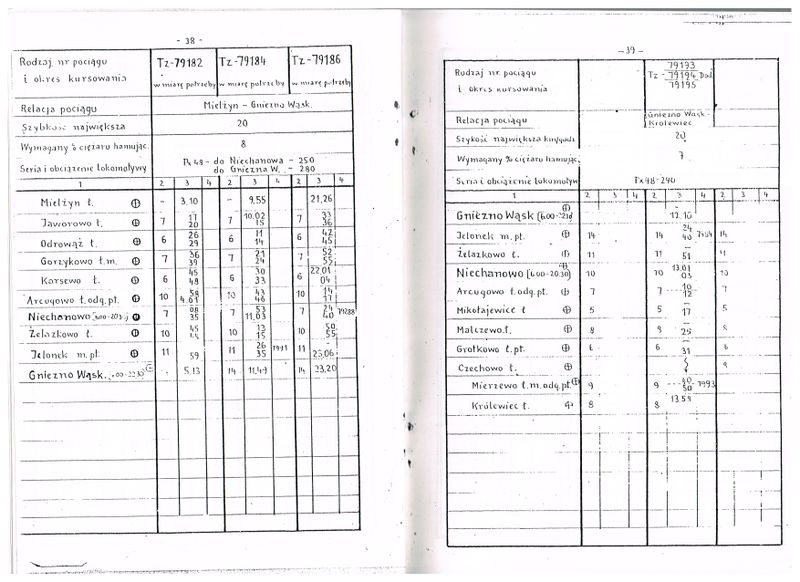 - 38 -
Rodzaj, nr pociągu i okres kursowania
Tz-79182 Tz-79184 Tz-79186
w miarę potrzeby w miarę potrzeby w miarę potrzeby
Relacja pociągu Mielżyn - Gniezno Wąsk.
Szybkość największa 20
Wymagany % ciężaru hamując. 8
Seria i obciążenie lokomotywy Px48 - do Niechanowa - 250
do Gniezna W. - 280
1 2 3 4 2 3 4 2 3 4
Mielżyn ł. - 3.10 - 9.55 21,26
Jaworowo ł. 7 17 20 7 10.02 15 7 33 36
Odrowąż ł. 6 26 29 6 11 14 6 42 45
Gorzykowo ł.m. 7 36 39 7 21 24 7 52 55
Karsewo ł. 6 45 48 6 30 33 6 22.01 04
Arcugowo ł.odg.pt. 10 58 4.01 10 43 46 10 14 17
Niechanowo 7 08 35 7 53 11,03 7 24 40 79288
Żelazkowo ł. 10 45 10 13 15 50 55
Jelonek m. pł. 11 59 11 26 35 11 23,06
Gniezno Wąsk. 5,13 14 11,49 14 23,20
- 39 -
Rodzaj nr. pociągu i okres kursowania
79193
Tz - 79194 Dod
79195
Relacja pociągu Gniezno Wąsk - Królewiec
Szykość największa km/godz 20
Wymagany % ciężaru hamując. 7
Seria i obciążenie lokomotyw Px48-240
1 2 3 4 2 3 4 2 3 4
Gniezno Wąsk 12.10
Jelonek m. pł. 14 14 24 40 14
Żelazkowo ł. 11 11 51 11
Niechanowo [6.00-20.30] 10 10 13.01 03 10
Arcugowo ł.odg.pt. 7 7 10 12 7
Mikołajewice ł 5 5 17 5
Malczewo.ł. 8 8 25 8
Grotkowo ł.pt. 6 6 31 6
Czechowo ł.
Mierzewo ł.m.odg.pt. 9 9 40 50 7993
Królewiec ł. 8 8 13.58